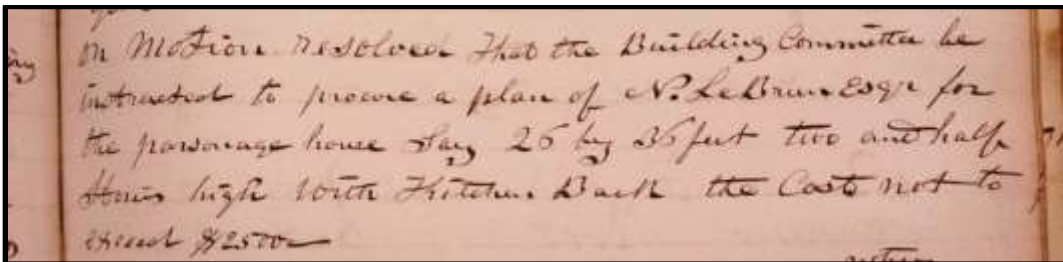 on Motion resolved That the Building Committee be
instructed to procure a plan of N. LeBrun Esqr for
the parsonage house Say 26 by 36 feet two and half
Stories high with Kitchen Back the Costs not to
exceed $2500